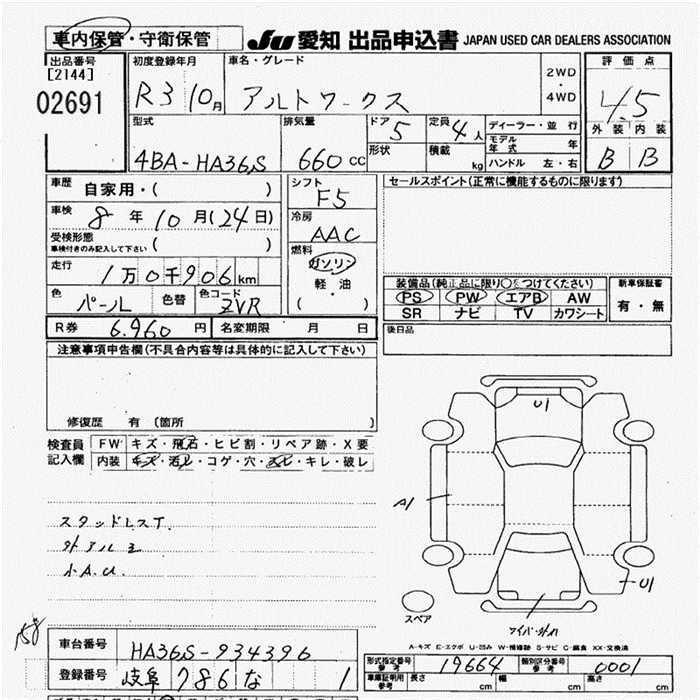 車内保管・守衛保管 JU 愛知 出品申込書 JAPAN USED CAR DEALERS ASSOCIATION
出品番号 [2144] 02691
初度登録年月 R3 10月
車名・グレード アルトワークス
2WD・4WD
評価点 4.5
外装 内装
B B
型式 4BA-HA36S
排気量 660 CC
ドア 5
形状
定員 4人
積載 kg
ディーラー・並行
モデル年式 年
ハンドル 左・右
車歴 自家用・( )
車検 8年10月(24日)
受検形態 車検付きのみ記入して下さい ( )
走行 1万0千906km
色 パール 色替 色コード ZVR
シフト F5
冷房 AAC
燃料 ガソリン・軽油 ( )
セールスポイント(正常に機能するものに限ります)
装備品(純正品に限り○をつけてください)
PS PW エアB AW
SR ナビ TV カワシート
新車保証書 有・無
R券 6.960円 名変期限 月 日
後日品
注意事項申告欄(不具合内容等は具体的に記入して下さい)
修復歴 有 〔箇所 〕
検査員記入欄
FW キズ・飛石・ヒビ割・リペア跡・X要
内装 キズ・汚レ・コゲ・穴・スレ・キレ・破レ
スタッドレスT.
外アルミ
小A.U.
U1
A1
U1
スペア
A-キズ E-エクボ U-凹み W-補修跡 S-サビ C-腐食 XX-交換済
車台番号 HA36S-934396
登録番号 岐阜 786 な 1
形式指定番号 参考 19664 類別区分番号 参考 0001
車庫証明用 参考 長さ cm 幅 cm 高さ cm